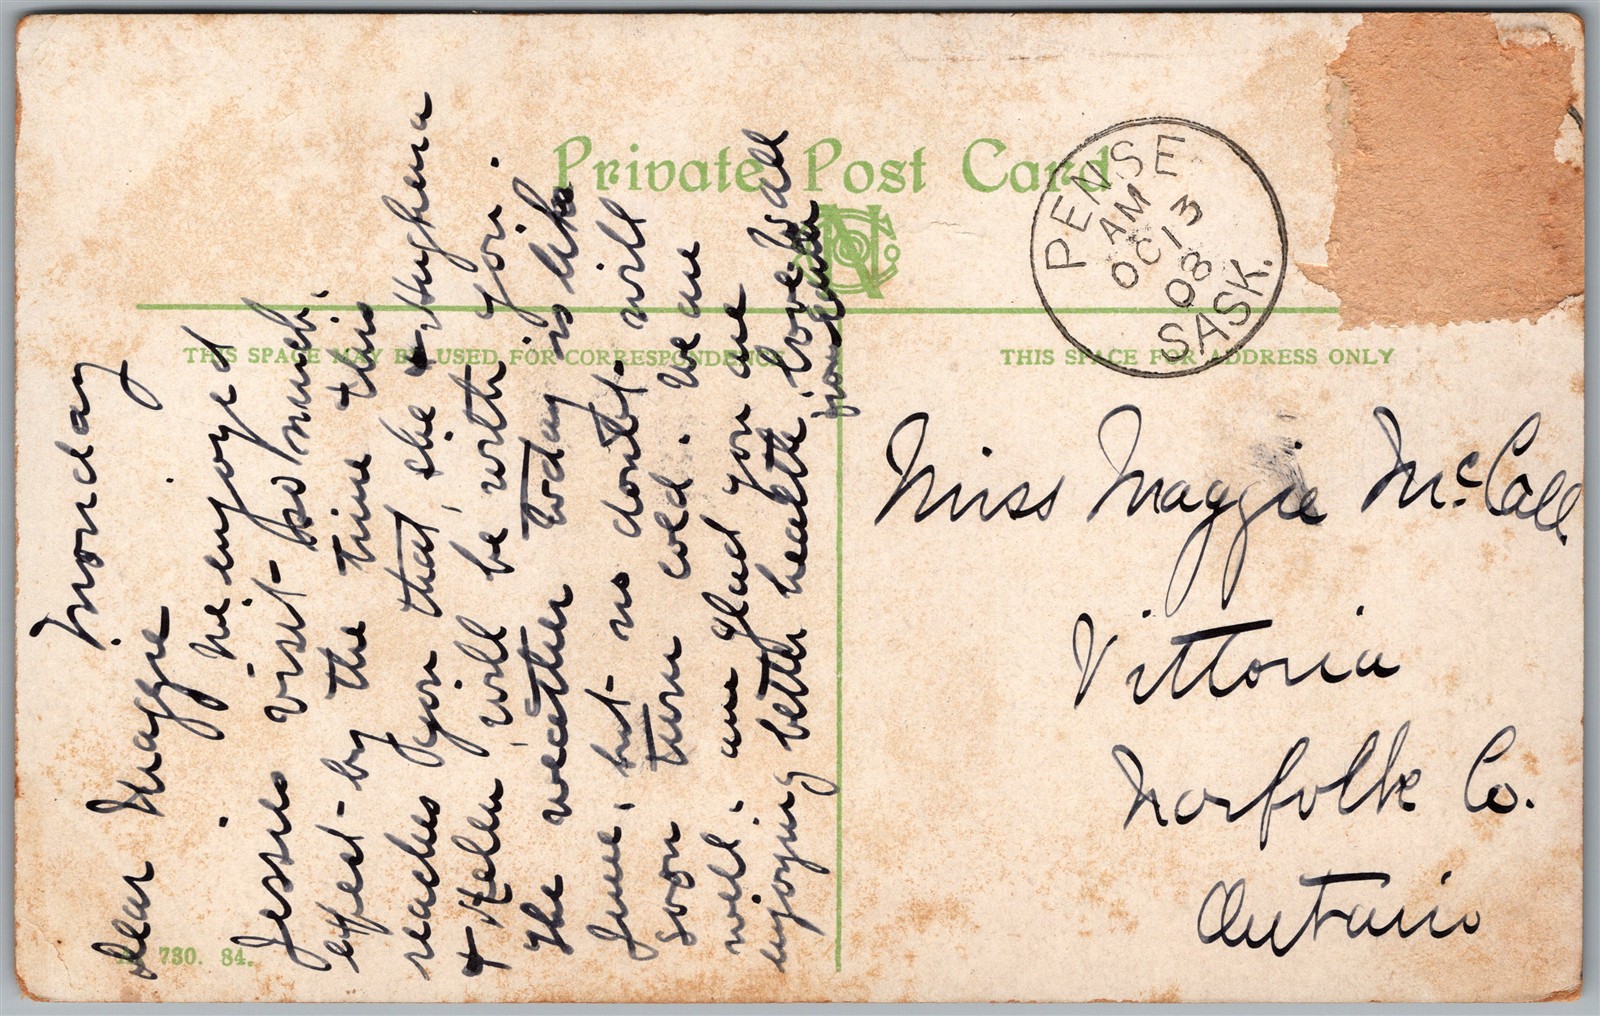 Private Post Card
THIS SPACE MAY BE USED FOR CORRESPONDENCE
THIS SPACE FOR ADDRESS ONLY
PENSE
AM
OC 13
08
SASK.
Monday
Dear Maggie
We enjoyed
Jessies visit so much.
expect by the time this
reaches you that she + Hughena
+ Helen will be with you.
The weather today is like
June, but no doubt will
soon turn cold. We are
well. am glad you are
enjoying better health, love to all
your
Miss Maggie McCall
Vittoria
Norfolk Co.
Ontario
730. 84.